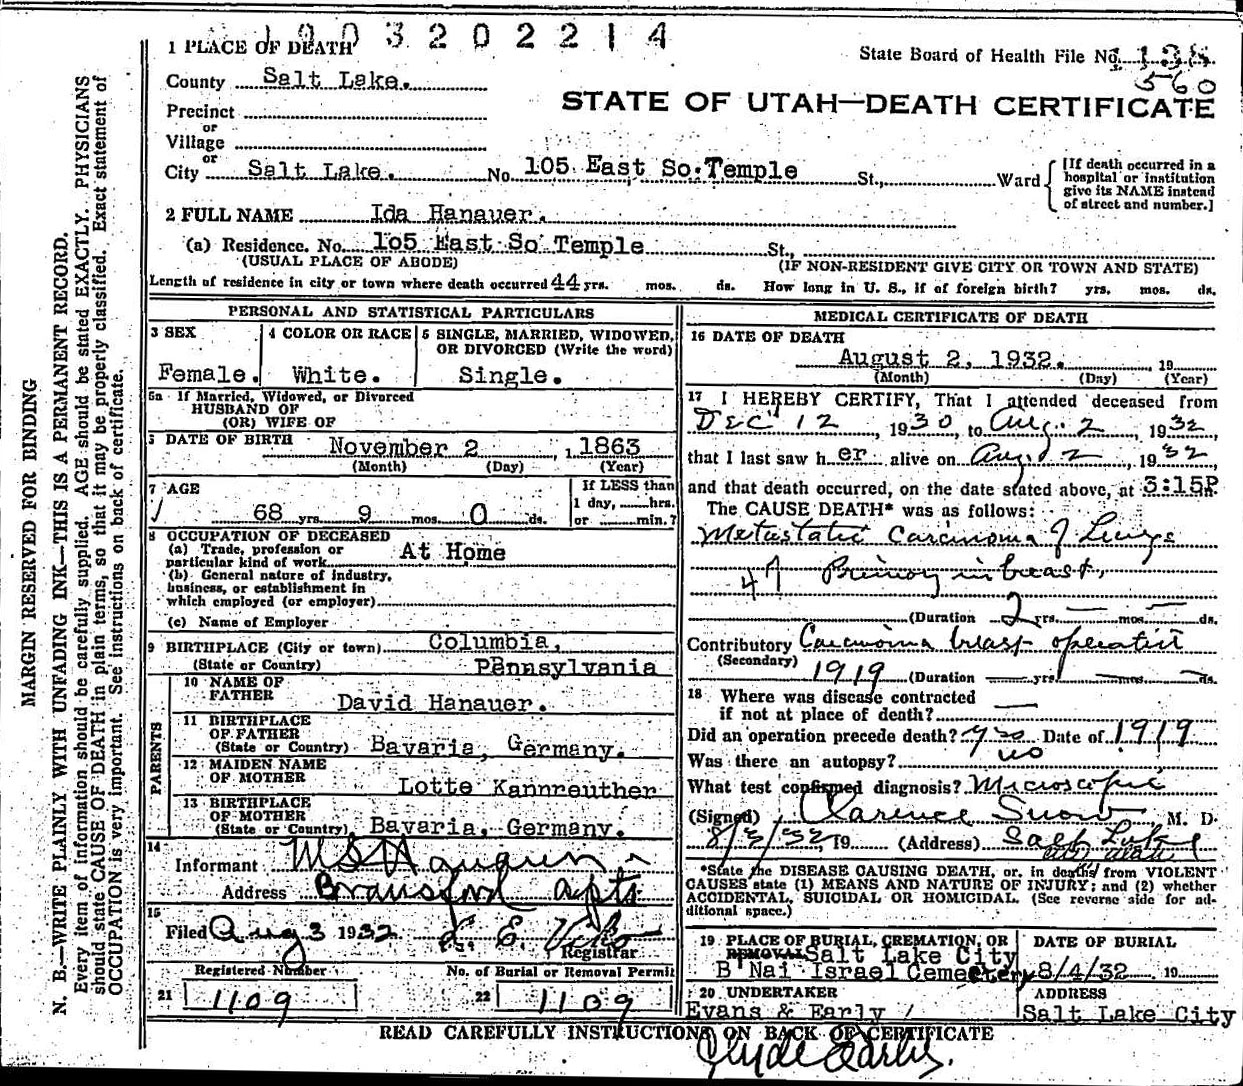 1003202214
1 PLACE OF DEATH
State Board of Health File No.
County Salt Lake.
560
Precinct
STATE OF UTAH—DEATH CERTIFICATE
or
Village
or
City Salt Lake. No. 105 East So. Temple St., Ward
[If death occurred in a hospital or institution give its NAME instead of street and number.]
2 FULL NAME Ida Hanauer.
(a) Residence. No. 105 East So Temple St.,
(USUAL PLACE OF ABODE) (IF NON-RESIDENT GIVE CITY OR TOWN AND STATE)
Length of residence in city or town where death occurred 44 yrs. mos. ds. How long in U. S., if of foreign birth? yrs. mos. ds.
PERSONAL AND STATISTICAL PARTICULARS
3 SEX
Female.
4 COLOR OR RACE
White.
5 SINGLE, MARRIED, WIDOWED,
OR DIVORCED (Write the word)
Single.
5a If Married, Widowed, or Divorced
HUSBAND OF
(OR) WIFE OF
DATE OF BIRTH November 2 , 1 1863
(Month) (Day) (Year)
7 AGE
68 yrs. 9 mos. 0 ds.
If LESS than
1 day, hrs.
or min.?
8 OCCUPATION OF DECEASED
(a) Trade, profession or
particular kind of work At Home
(b) General nature of industry,
business, or establishment in
which employed (or employer)
(c) Name of Employer
9 BIRTHPLACE (City or town) Columbia,
(State or Country) Pennsylvania
PARENTS
10 NAME OF
FATHER David Hanauer.
11 BIRTHPLACE
OF FATHER
(State or Country) Bavaria, Germany.
12 MAIDEN NAME
OF MOTHER Lotte Kannreuther
13 BIRTHPLACE
OF MOTHER
(State or Country) Bavaria, Germany.
14
Informant M S Hanauer
Address Bransford apts
15
Filed Aug 3 1932
Registrar
Registered Number
21 1109
No. of Burial or Removal Permit
22 1109
MEDICAL CERTIFICATE OF DEATH
16 DATE OF DEATH
August 2, 1932. 19
(Month) (Day) (Year)
17 I HEREBY CERTIFY, That I attended deceased from
DEC 12, 1930, to Aug. 2, 1932,
that I last saw her alive on Aug 2, 1932
and that death occurred, on the date stated above, at 3:15P m.
The CAUSE DEATH* was as follows:
Metastatic Carcinoma of Lungs
47 Primary in breast,
(Duration 2 yrs. — mos. — ds.
Contributory Carcinoma breast operation
(Secondary) 1919 (Duration — yrs. — mos. — ds.
18 Where was disease contracted
if not at place of death? —
Did an operation precede death? yes Date of 1919
Was there an autopsy? no
What test confirmed diagnosis? Microscopic
(Signed) Clarence Snow, M. D.
8/3/32 19 (Address) Salt Lake
*State the DISEASE CAUSING DEATH, or, in deaths from VIOLENT
CAUSES state (1) MEANS AND NATURE OF INJURY; and (2) whether
ACCIDENTAL, SUICIDAL OR HOMICIDAL. (See reverse side for ad-
ditional space.)
19 PLACE OF BURIAL, CREMATION, OR
REMOVAL Salt Lake City
B'Nai Israel Cemetery
DATE OF BURIAL
8/4/32 19
20 UNDERTAKER
Evans & Early
ADDRESS
Salt Lake City
READ CAREFULLY INSTRUCTIONS ON BACK OF CERTIFICATE
Clyde Early.
MARGIN RESERVED FOR BINDING
N. B.—WRITE PLAINLY WITH UNFADING INK—THIS IS A PERMANENT RECORD.
Every item of information should be carefully supplied. AGE should be stated EXACTLY. PHYSICIANS
should state CAUSE OF DEATH in plain terms, so that it may be properly classified. Exact statement of
OCCUPATION is very important. See instructions on back of certificate.